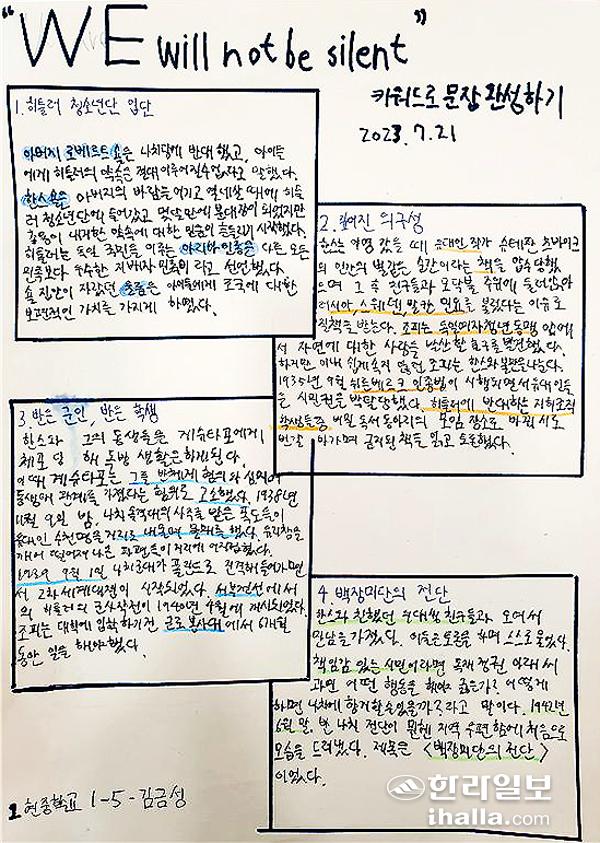 "WE will not be silent"
키워드로 문장 완성하기
2023.7.21
1. 히틀러 청소년단 입단
아버지 로베르트 숄은 나치당에 반대했고, 아이들
에게 히틀러의 약속은 절대 이루어질 수 없다고 말했다.
한스 숄은 아버지의 바람을 어기고 열네살 때에 히틀
러 청소년단에 들어갔고 몇달만에 분대장이 되었지만
총통이 내걱한 약속에 대한 믿음이 흔들리기 시작했다.
히틀러는 독일 국민을 이루는 아리아 인종은 다른 모든
민족보다 우수한 지배자 민족이라고 선언했다.
숄 집안이 자랐던 울름은 아이들에게 조국에 대한
보편적인 가치를 가지게 하였다.
2. 깊어진 의구심
한스는 야영 갔을 때 유대인 작가 슈테판 츠바이크
의 인간의 빛같은 순간이라는 책을 압수당했
으며 그 후 친구들과 모닥불 주위에 둘러앉아
러시아, 스웨덴, 발칸 민요를 불렀다는 이유로
질책을 받는다. 조피는 독일여자청년동맹 안에
서 자연에 대한 사랑을
하지만 이내 쉽게 속지 않던 조피는 한스와 불만을 나눈다.
1935년 9월 뉘른베르크 인종법이 시행되면서 유대인들
은 시민권을 박탈당했다. 히틀러에 반대하는 지하조직
학생들은 매월 독서 동아리의 모임 장소로 바꿔 시도
번갈아가며 금지된 책을 읽고 토론했다.
3. 반은 군인, 반은 학생
한스와 그의 동생들은 게슈타포에게
체포 당해 독방 생활은 하게 된다.
이때 게슈타포는 그를 반체제 혐의와 십대의
동성애 관계를 가졌다는 혐의로 고소했다. 1938년
11월 9일 밤, 나치 돌격대의 사주를 받은 폭도들이
유대인 수천명을 거리로 내몰며 몰매를 했다. 유리창을
깨어 떨어져 나온 파편들이 거리에 어지럽혔다.
1939 9월 1일 나치군대가 폴란드로 진격해 들어가면
서 2차 세계대전이 시작되었다. 서부전선에서
의 히틀러의 군사작전이 1940년 4월에 개시되었다.
조피는 대학에 입학하기 전 근로 봉사대에서 6개월
동안 일을 해야했다.
4. 백장미단의 전단
한스와 친했던 의대생 친구들과 모여서
만남을 가졌다. 이들은 토론을 하며 스스로 물었다.
책임감 있는 시민이라면 독재 정권 아래서
과연 어떤 행동을 했어야 옳은가? 어떻게
하면 나치에 항거할 수 있을까? 라고 말이다. 1942년
6월 말, 반 나치 전단이 뮌헨 지역 우편함에 처음으로
모습을 드러냈다. 제목은 <백장미단의 전단>
이었다.
1-5 - 김금성
한라일보
ihalla.com